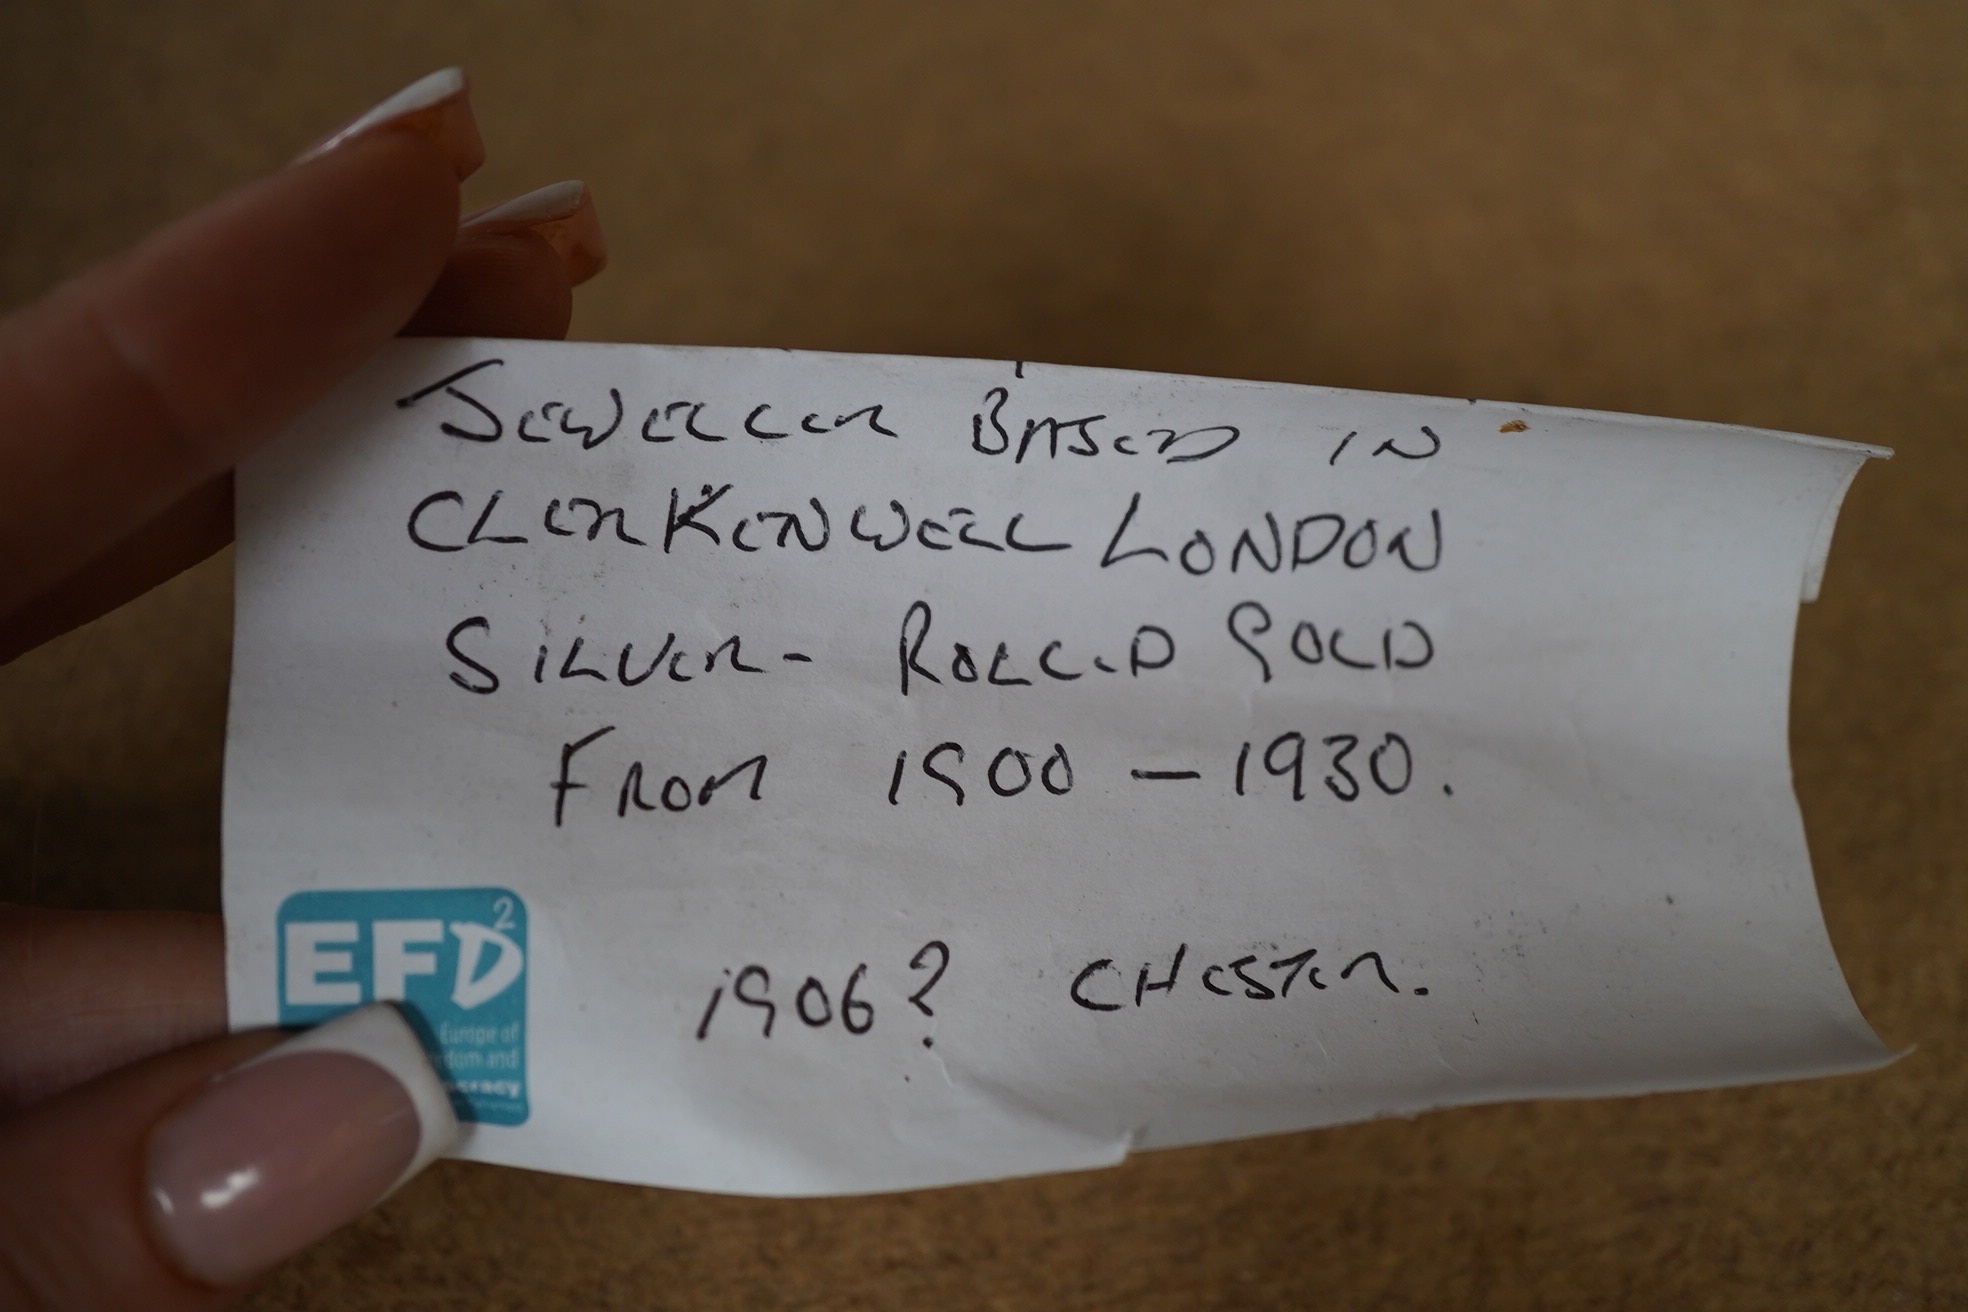 JEWELLER BASED IN
CLERKENWELL LONDON
SILVER - ROLLED GOLD
FROM 1900 - 1930.
1906? CHESTER.
EFD²
Europe of
and